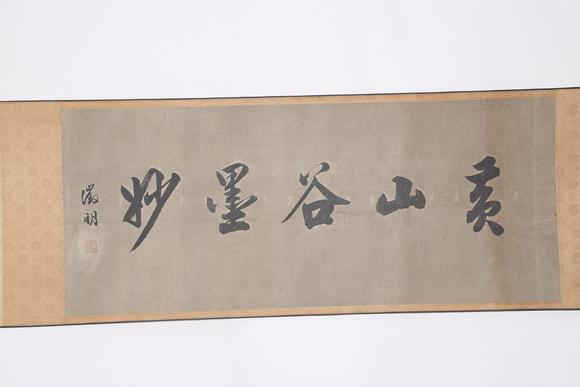 黄山谷墨妙
徵明